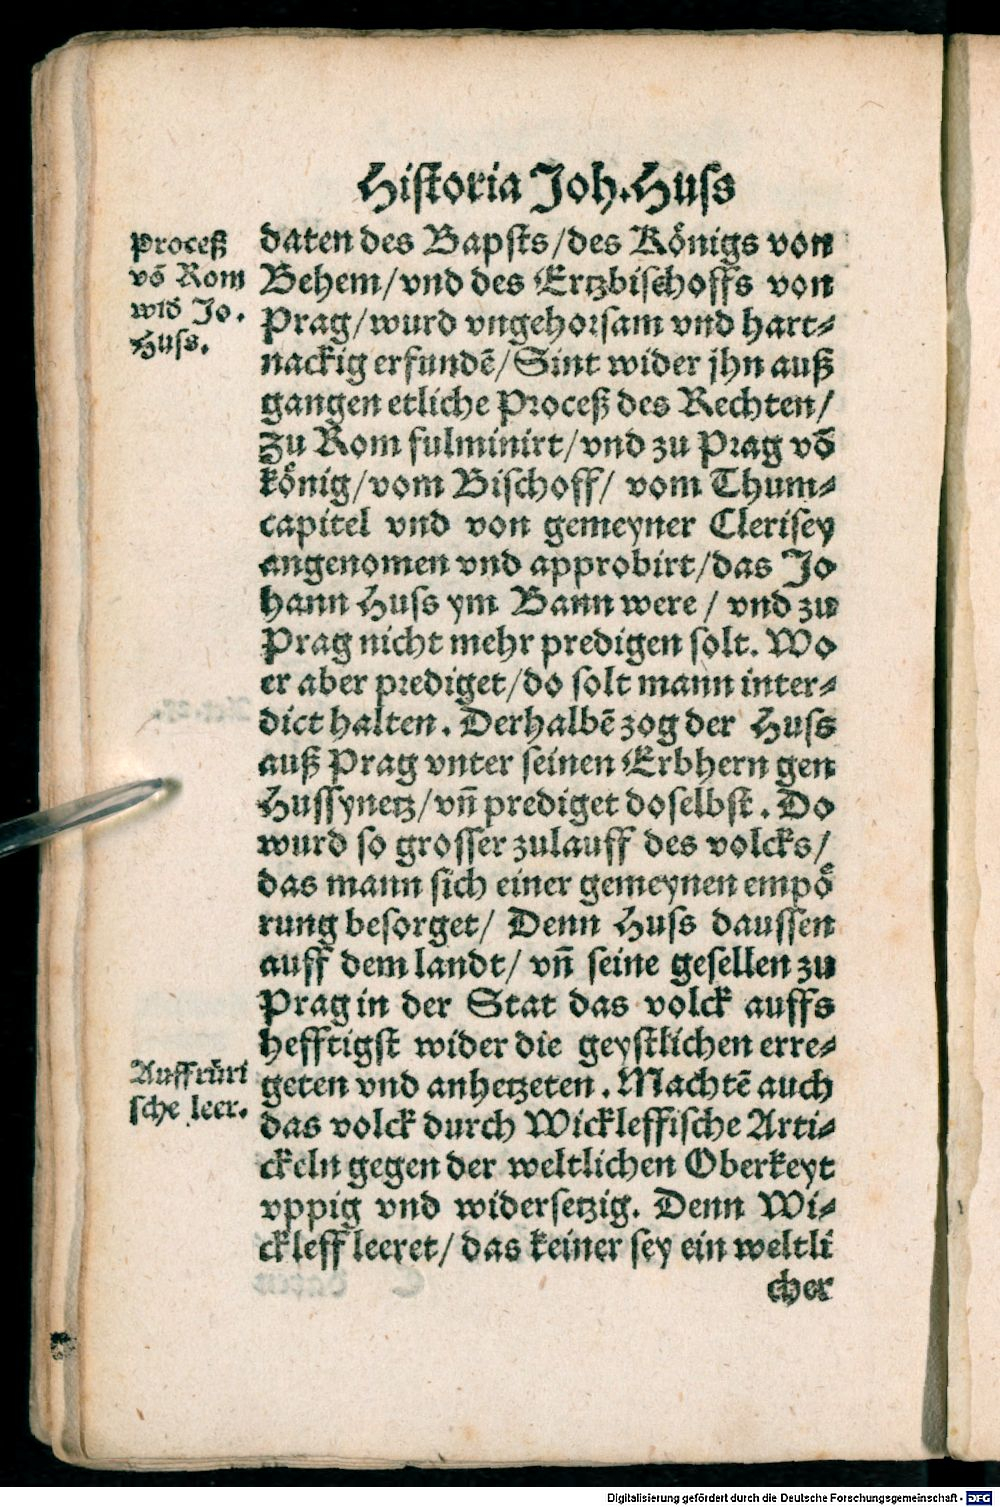 Historia Joh. Huss
Proceß
võ Rom
wid Jo.
Huss.
daten des Bapsts/des Königs von
Behem/vnd des Ertzbischoffs von
Prag/wurd vngehorsam vnd hart-
nackig erfundẽ/Sint wider jhn auß
gangen etliche Proceß des Rechten/
zu Rom fulminirt/vnd zu Prag võ
könig/vom Bischoff/ vom Thum-
capitel vnd von gemeyner Clerisey
angenomen vnd approbirt/das Jo
hann Huss ym Bann were / vnd zu
Prag nicht mehr predigen solt. Wo
er aber prediget/do solt mann inter-
dict halten. Derhalbẽ zog der Huss
auß Prag vnter seinen Erbhern gen
Hussynetz/vñ prediget doselbst. Do
wurd so grosser zulauff des volcks/
das mann sich einer gemeynen empö
rung besorget/ Denn Huss daussen
auff dem landt/ vñ seine gesellen zu
Prag in der Stat das volck auffs
hefftigst wider die geystlichen erre-
Auffrüri
sche leer.
geten vnd anhetzeten. Machtẽ auch
das volck durch Wickleffische Arti-
ckeln gegen der weltlichen Oberkeyt
vppig vnd widersetzig. Denn Wi-
ckleff leeret/ das keiner sey ein weltli
cher
Digitalisierung gefördert durch die Deutsche Forschungsgemeinschaft - DFG